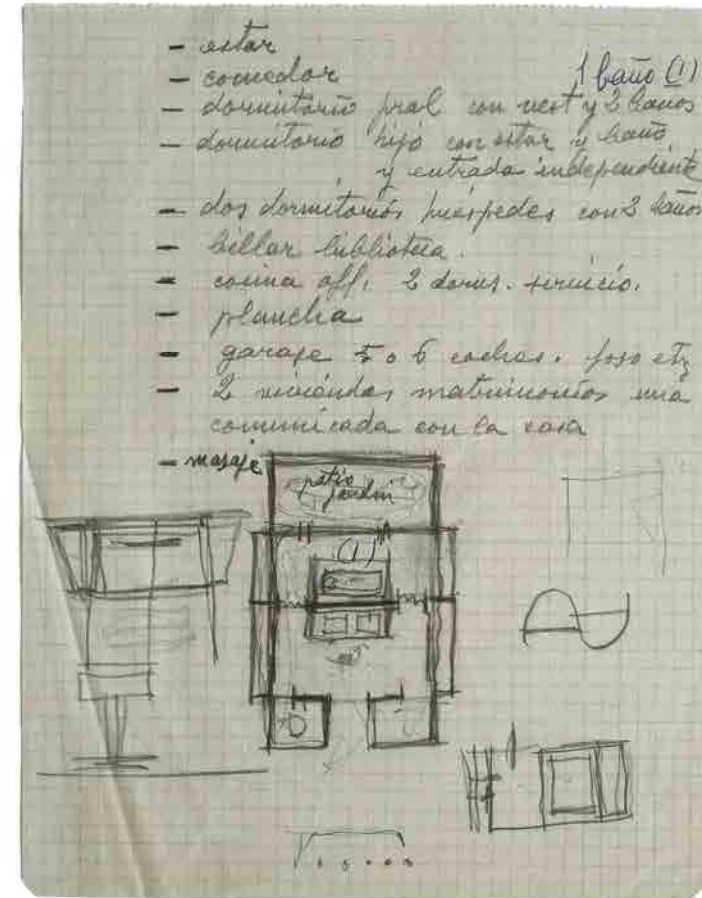 - estar
- comedor
1 baño (1)
- dormitorio pral con vest y 2 baños
- dormitorio hijo con estar y baño
y entrada independiente
- dos dormitorios huéspedes con 2 baños
- billar biblioteca.
- cocina off. 2 dorms. servicio.
- plancha
- garaje 5 o 6 coches. foso etz
- 2 viviendas matrimonios una
comunicada con la casa
- masaje
patio
jardin
(1)